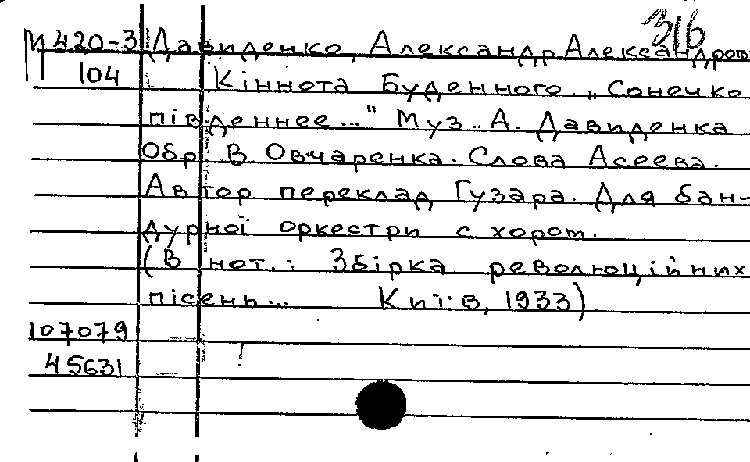 316
М 420-3 Давиденко, Александр Александров
104 Кіннота Буденного. „Сонечко
південнее..." Муз. А. Давиденка
Обр. В. Овчаренка. Слова Асеева.
Автор переклад Гузара. Для бан-
дурної оркестри с хором.
(В нот.: Збірка революційних
пісень... Київ, 1933)
107079
45631